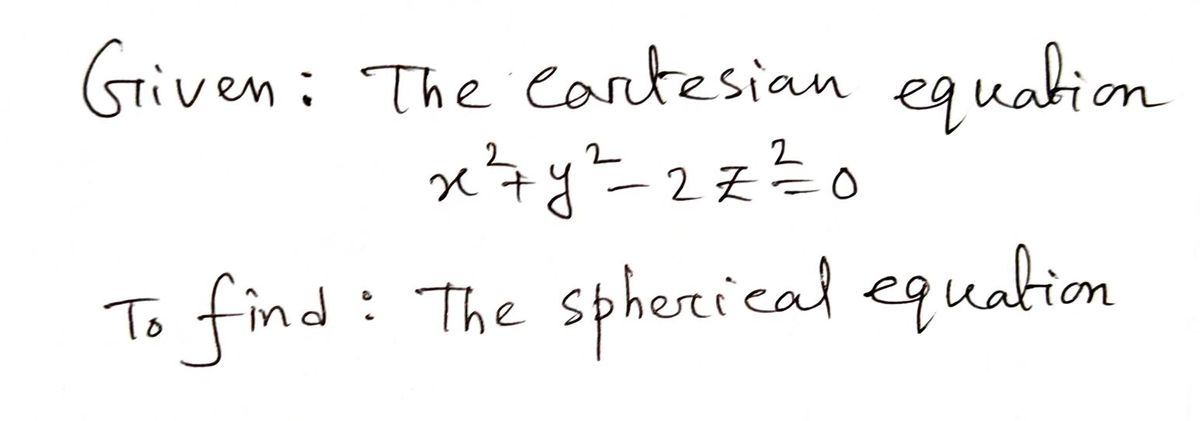 Given: The cartesian equation
x²+y²-2z²=0
To find: The spherical equation